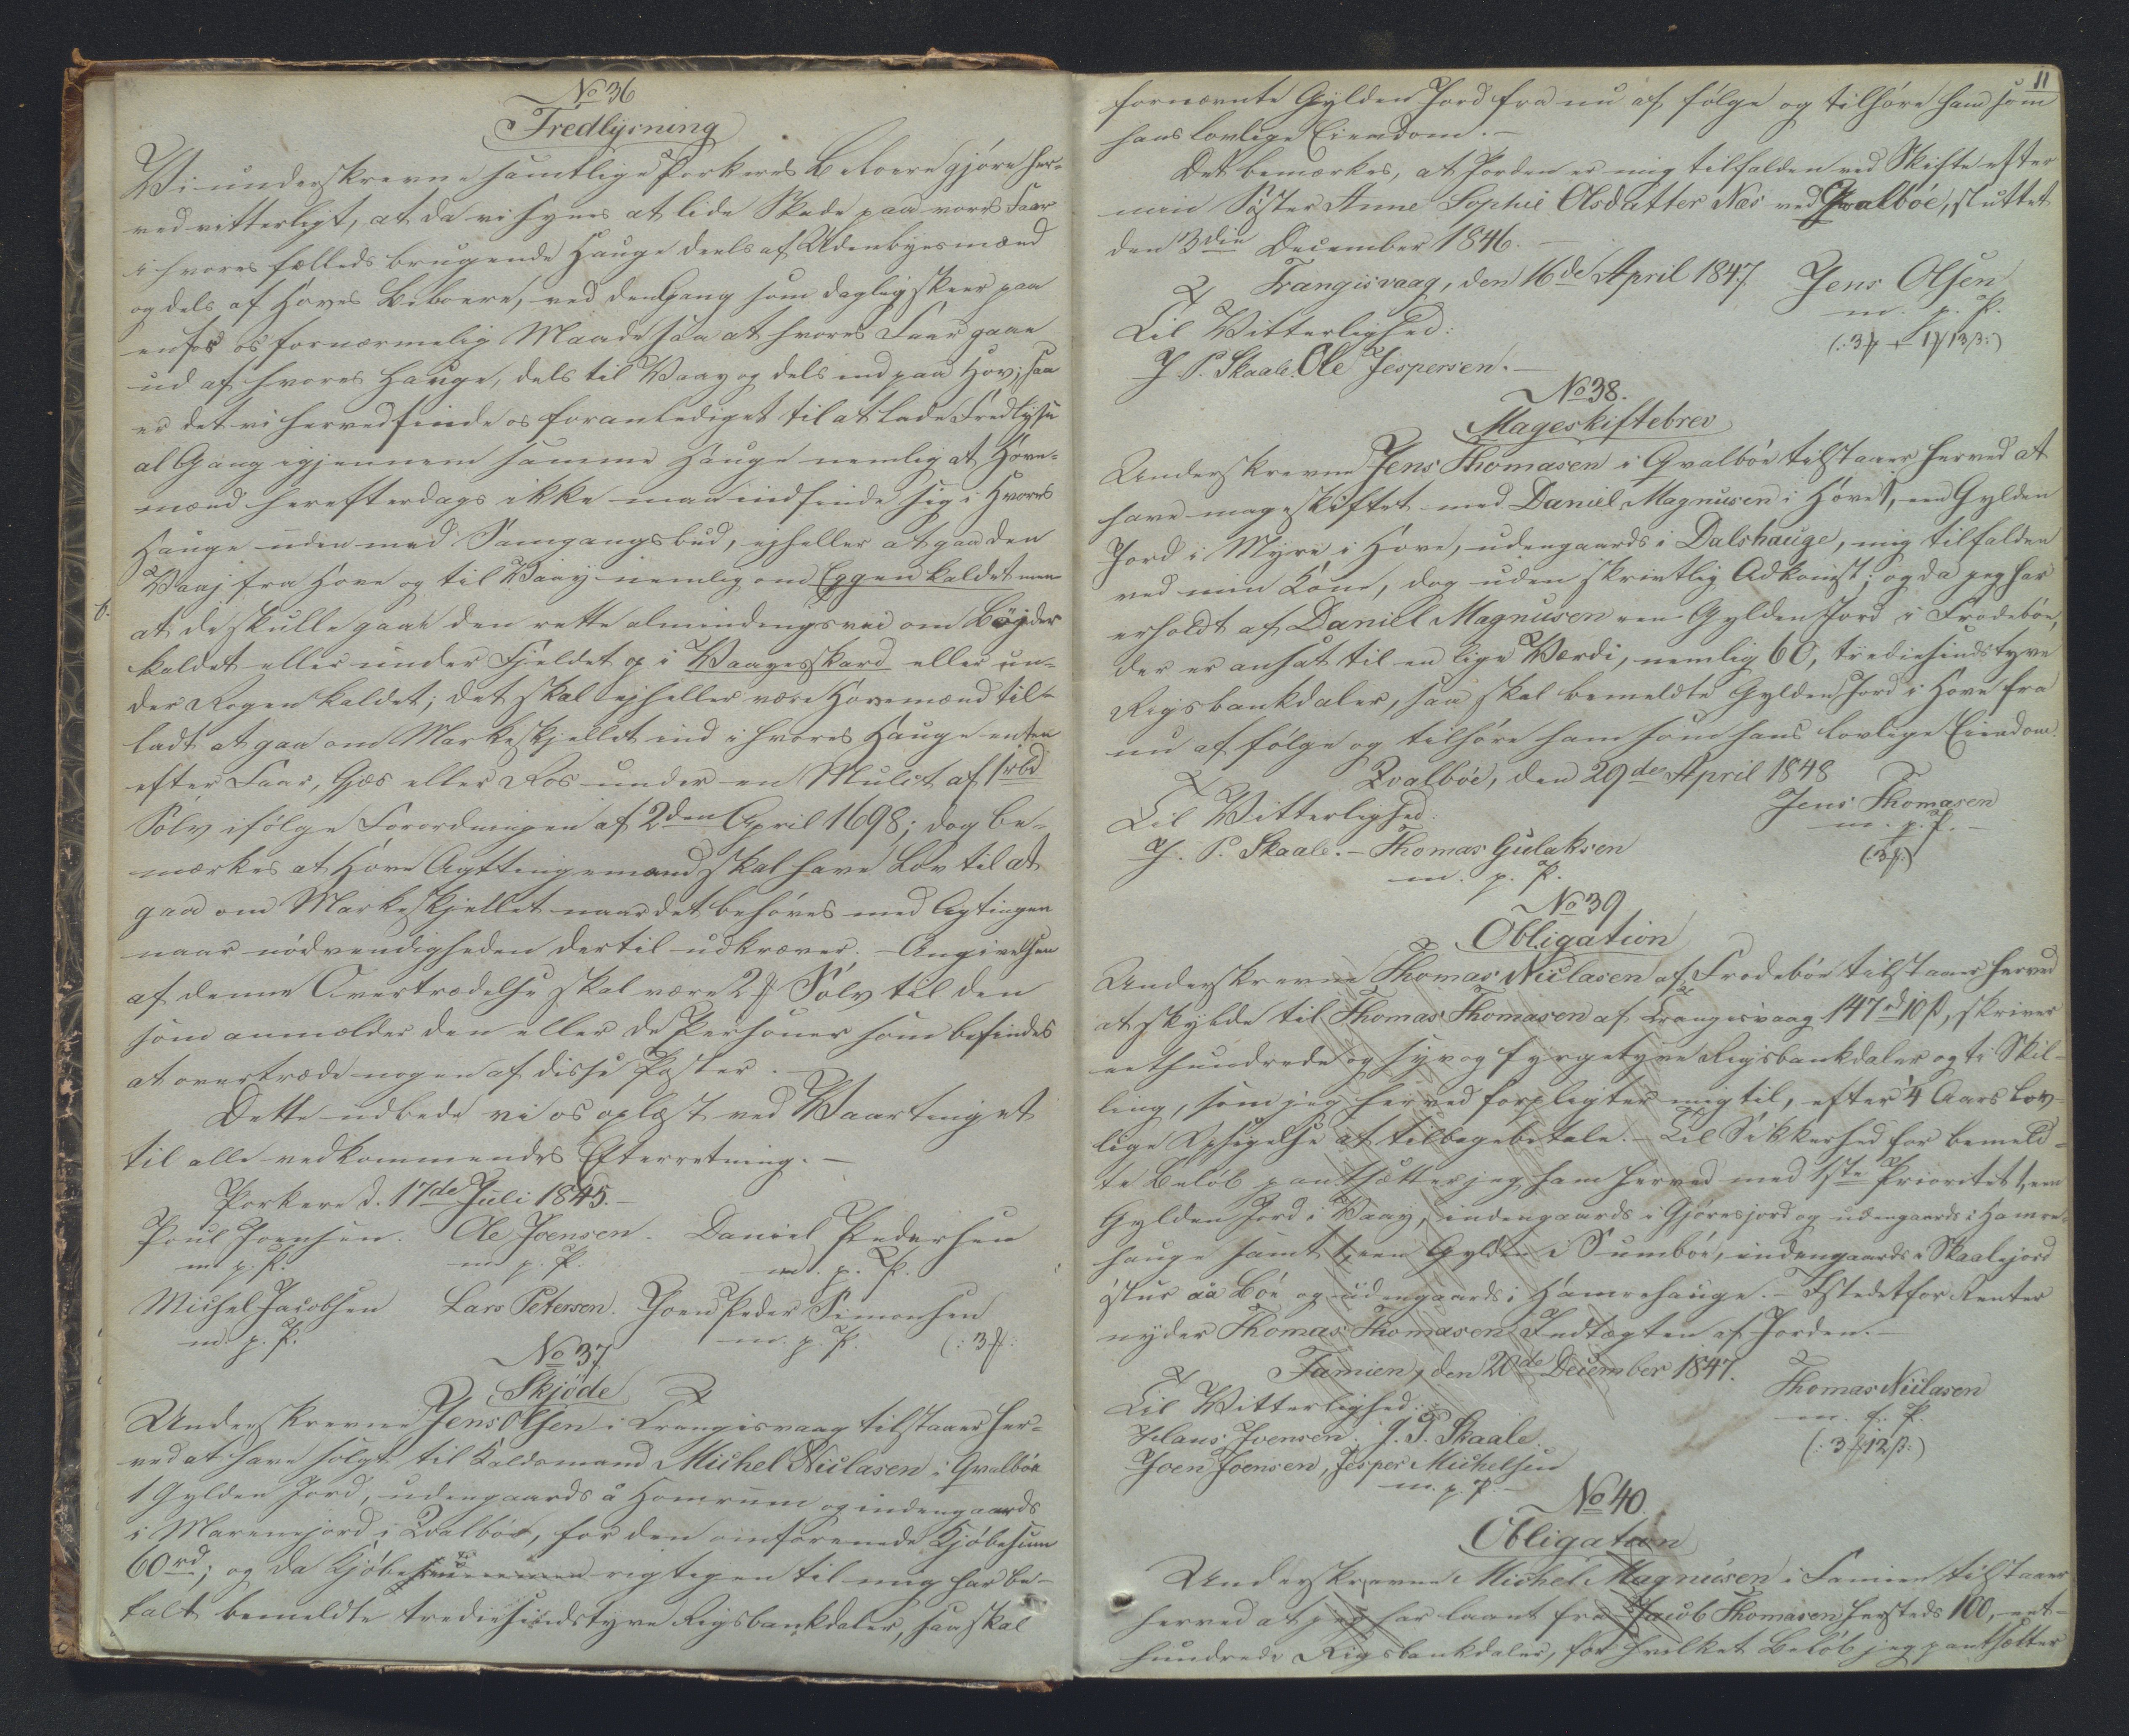 No 36
Fredlysning
Vi underskrevne samtlige Porkeres Beboere gjøre her-
ved vitterligt, at da vi synes at lide Skade paa vores Faar
i hvores fælleds brugende Hauge deels af Udenbyesmænd
og dels af Hoves Beboere, ved den Gang som daglig skeer paa
en for os fornærmelig Maade saa at hvores Faar gaae
ud af hvores Hauge, dels til Vaag og dels ind paa Hov; saa
er det vi herved finde os foranlediget til at lade Fredlyse
al Gang igjennem samme Hauge nemlig at Hove-
mænd herefterdags ikke maa indfinde sig i Hvores
Hauge uden med Samgangsbud, ejheller at gaa den
Vaaj fra Hove og til Vaag nemlig om Eggen kaldet men
at de skulle gaae den rette almindingsvei om Bøjder
kaldet eller under Fjeldet og i Vaagesskard eller un-
der Rogen kaldet; det skal ejheller være Hovemænd til-
ladt at gaa om Markeskjellet ind i hvores Hauge enten
efter Faar, Gjæs eller Ros under en Mulct af 1 rbd
Sølv ifølge Forordningen af 2den April 1698; dog be-
mærkes at Hove Agttingemænd skal have Lov til at
gaa om Markeskjellet naar det behøves med Agtingen
naar nødvendigheden dertil udkræver. - Angivelsen
af denne Overtrædelse skal være 2 ƒ Sølv til den
som anmelder den eller de Personer som befindes
at overtræde nogen af disse Poster. -
Dette udbede vi os oplæst ved Vaartinget
til alle vedkommendes Efterretning. -
Porkere d. 17de Juli 1845. -
Poul Joensen. Ole Joensen. Daniel Pedersen
m. p. P. m. p. P. m. p. P.
Michel Jacobsen Lars Petersen. Joen Peder Simonsen
m. p. P. m. p. P. (: 3 ƒ:
No 37.
Skjøde
Underskrevne Jens Olsen i Trangisvaag tilstaaer her-
ved at have solgt til Kaldsmand Michel Niclasen i Qvalbøe
1 Gylden Jord, udengaards å Homrum og indengaards
i Marenejord i Qvalbøe, for den omforenede Kjøbesum
60 rd; og da Kjøberen rigtigen til mig har be-
talt bemeldte trediesindstyve Rigsbankdaler, saa skal
11
fornævnte Gylden Jord fra nu af følge og tilhøre ham som
hans lovlige Eiendom. -
Det bemærkes, at Jorden er mig tilfalden ved Skifte efter
min Søster Anne Sophie Olsdatter Næs ved Qvalbøe, sluttet
den 3die December 1846. -
Trangisvaag, den 16de April 1847 Jens Olsen
Til Vitterlighed: m. p. P.
J. P. Skaale. Ole Jespersen. - (: 3 ƒ + 1 ƒ 13 ß:)
No 38.
Mageskiftebrev
Underskrevne Jens Thomasen i Qvalbøe tilstaaer herved at
have mageskiftet med Daniel Magnusen i Hove 1, een Gylden
Jord i Myre i Hove, udengaards i Dalshauge, mig tilfalden
ved min Kone, dog uden skrivtlig Adkomst; og da jeg har
erholdt af Daniel Magnusen een Gylden Jord i Frodebøe,
der er ansat til en lige Værdi, nemlig 60, trediesindstyve
Rigsbankdaler, saa skal bemeldte Gylden Jord i Hove fra
nu af følge og tilhøre ham som hans lovlige Eiendom.
Qvalbøe, den 29de April 1848
Til Vitterlighed: Jens Thomasen
J. P. Skaale. - Thomas Gulaksen m. p. P. -
m. p. P. (3 ƒ)
No 39
Obligation
Underskrevne Thomas Niclasen af Frodebøe tilstaaer herved
at skylde til Thomas Thomasen af Trangisvaag 147 rd 10 ß, skriver
eethundrede og syv og fyrgetyve Rigsbankdaler og ti Skil-
ling, som jeg herved forpligter mig til, efter 4 Aars lov-
lige Opsigelse at tilbagebetale. - Til Sikkerhed for bemeld-
te Beløb pantsætter jeg ham herved med 1ste Prioritet 1, een
Gylden Jord i Vaag, indengaards i Gjøresjord og udengaards i Hamre-
hauge samt 1, een Gylden i Sumbøe, indengaards i Skaalejord
østur åå Bøe og udengaards i Hamrehauge. - Istedetfor Renter
nyder Thomas Thomasen Indtægten af Jorden. -
Famien, den 20de December 1847.
Til Vitterlighed: Thomas Niclasen
Klaus Joensen. J. P. Skaale. m. f. P.
Joen Joensen, Jesper Michelsen (: 3 ƒ 12 ß:)
m. p. P. -
No 40.
Obligation
Underskrevne Michel Magnusen i Famien tilstaaer
herved at jeg har laant fra Jacob Thomasen hersteds 100, eet-
hundrede Rigsbankdaler, for hvilket Beløb jeg pantsætter